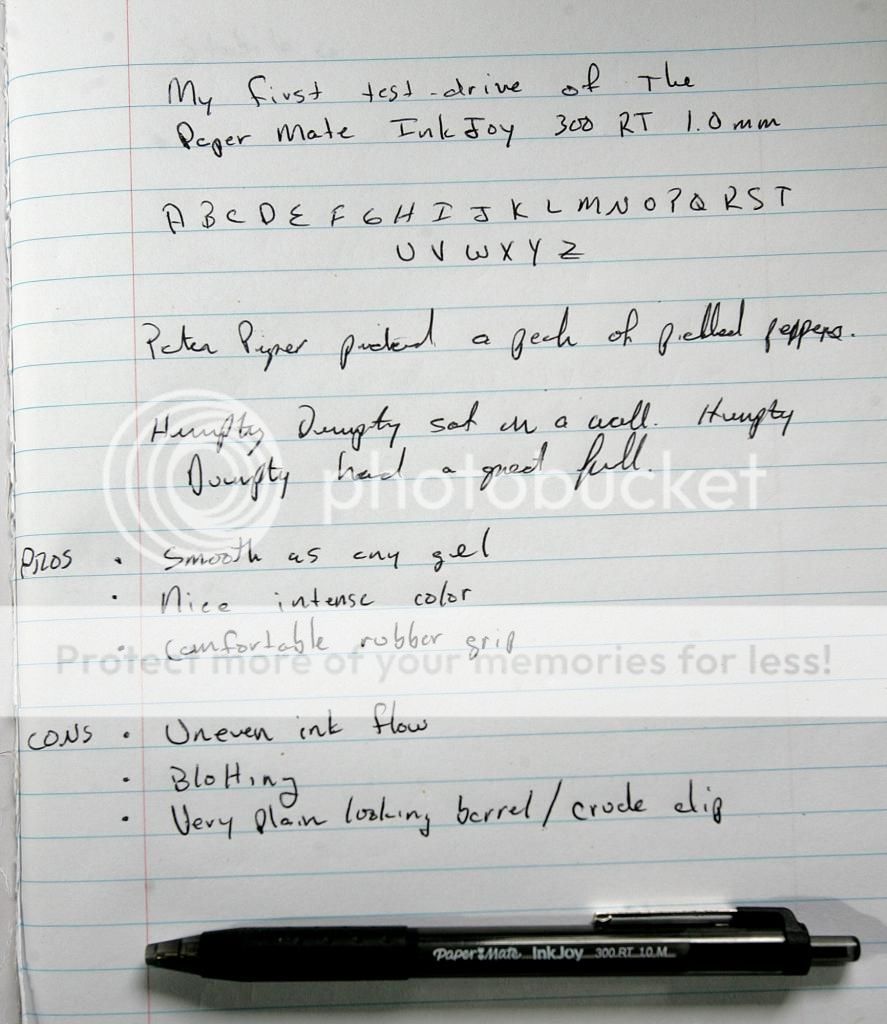 My first test-drive of The
Paper Mate InkJoy 300 RT 1.0 mm
A B C D E F G H I J K L M N O P Q R S T
U V W X Y Z
Peter Piper picked a peck of pickled peppers.
Humpty Dumpty sat on a wall. Humpty
Dumpty had a great fall.
photobucket
PROS • Smooth as any gel
• Nice intense color
• Comfortable rubber grip
Protect more of your memories for less!
CONS • Uneven ink flow
• Blotting
• Very plain looking barrel / crude clip
Paper Mate InkJoy 300 RT 1.0 M